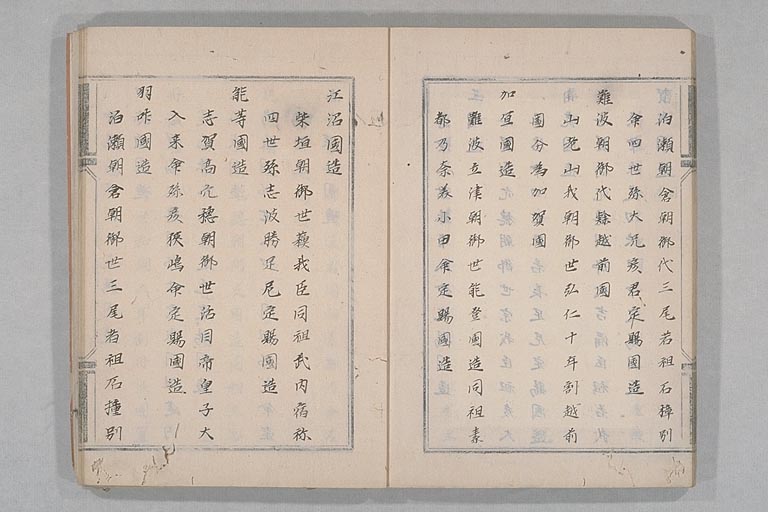 泊瀬朝倉朝御代三尾君祖石撞別
命四世孫大兄彦君定賜國造
難波朝御代隷越前國
嵯峨朝御世弘仁十年割越前
國分為加賀國
加宜國造
難波立津朝御世能登國造同祖素
都乃奈美小田命定賜國造
江沼國造
柴垣朝御世蘓我臣同祖武内宿祢
四世孫志波勝足尼定賜國造
能等國造
志賀高穴穂朝御世活目帝皇子大
入来命孫彦狭嶋命定賜國造
羽咋國造
泊瀬朝倉朝御世三尾君祖石撞別